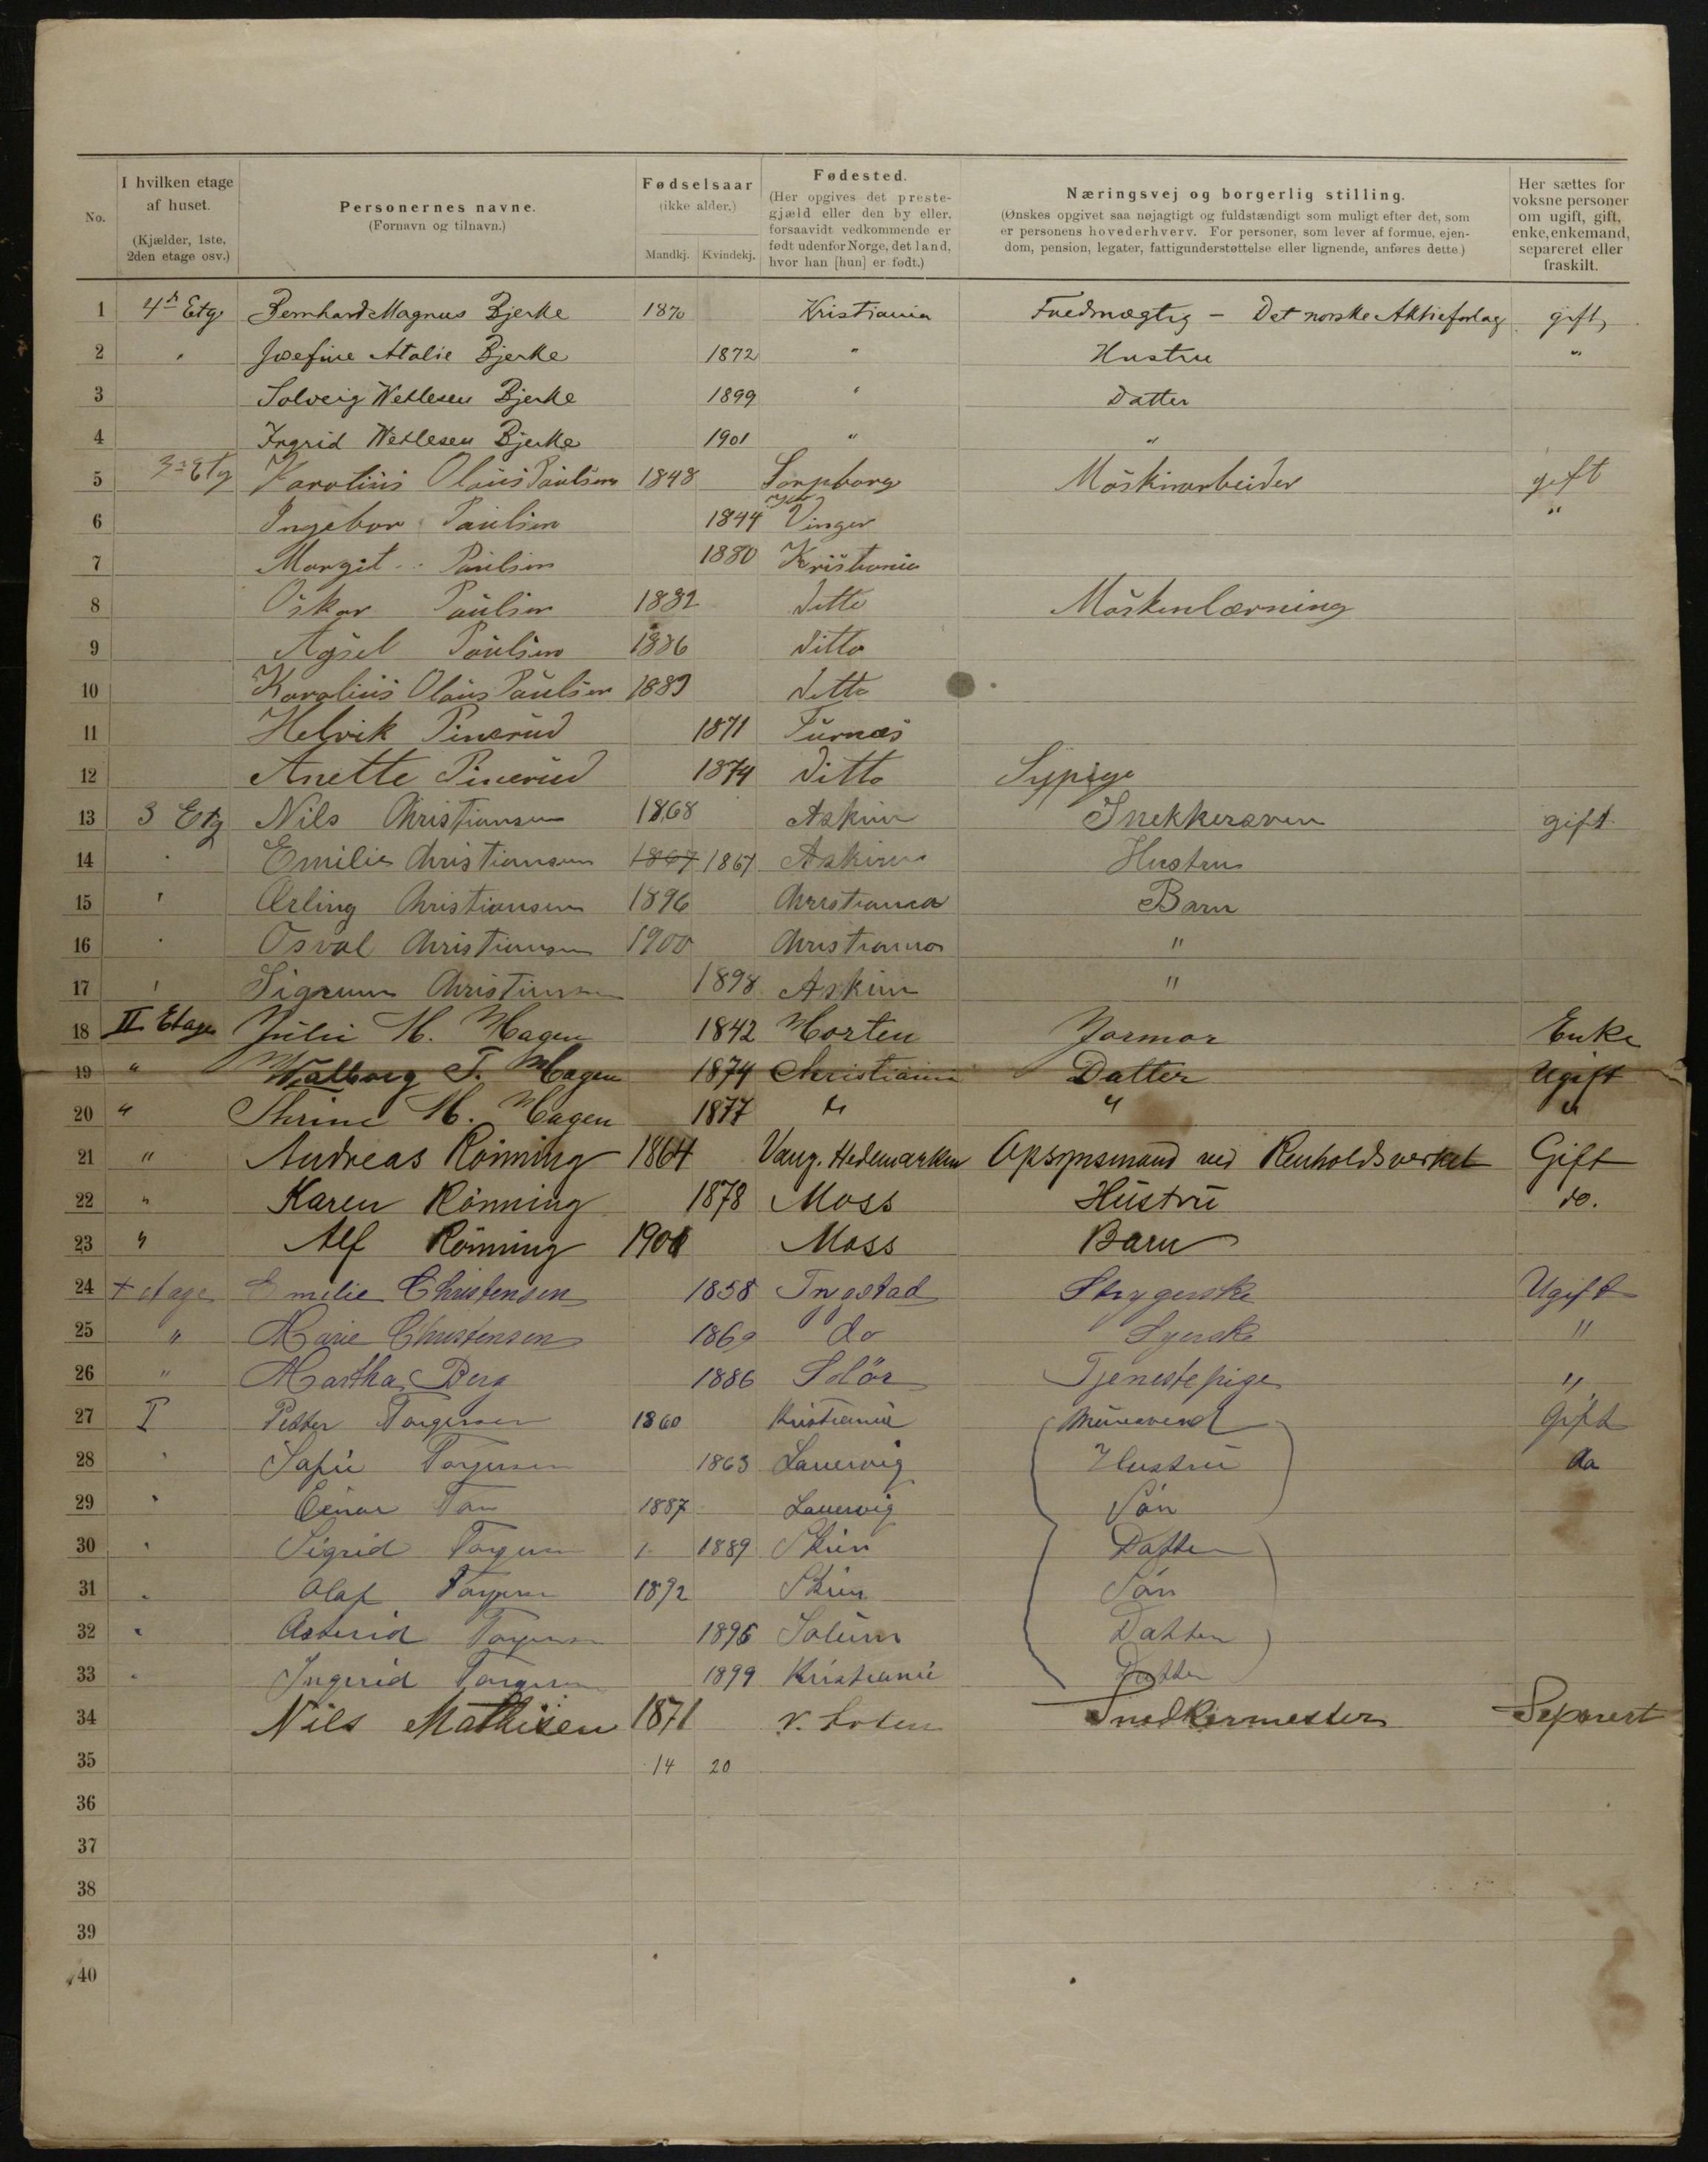 No.
I hvilken etage
af huset.
(Kjælder, 1ste,
2den etage osv.)
Personernes navne.
(Fornavn og tilnavn.)
Fødselsaar
(ikke alder.)
Mandkj. Kvindekj.
Fødested.
(Her opgives det preste-
gjæld eller den by eller,
forsaavidt vedkommende er
født udenfor Norge, det land,
hvor han [hun] er født.)
Næringsvej og borgerlig stilling.
(Ønskes opgivet saa nøjagtigt og fuldstændigt som muligt efter det, som
er personens hovederhverv. For personer, som lever af formue, ejen-
dom, pension, legater, fattigunderstøttelse eller lignende, anføres dette.)
Her sættes for
voksne personer
om ugift, gift,
enke, enkemand,
separeret eller
fraskilt.
1 4de Etg Bernhard Magnus Bjerke 1870 Kristiania Fuldmægtig – Det norske Aktieforlag gift
2 " Josefine Atalie Bjerke 1872 " Hustru "
3 Solveig Wetlesen Bjerke 1899 " Datter
4 Ingrid Wetlesen Bjerke 1901 " "
5 3 Etg Karolius Olaus Paulsen 1848 Sarpborg Maskinarbeider gift
6 Ingebor Paulsen 1844 Vinger "
7 Margit Paulsen 1880 Kristiania
8 Oskar Paulsen 1882 ditto Maskenlærning
9 Agsel Paulsen 1886 ditto
10 Karolius Olaus Paulsen 1889 ditto
11 Helvik Pinerud 1871 Furnæs
12 Anette Pinerud 1874 ditto Sypige
13 3 Etg Nils Christiansen 1868 Askim Snekkersven gift
14 " Emilie Christiansen 1867 1867 Askim Hustru
15 " Erling Christiansen 1896 Christiania Barn
16 " Osval Christiansen 1900 Christiania "
17 " Sigrun Christiansen 1898 Askim "
18 II Etage Julie M. Hagen 1842 Horten Jormor Enke
19 " Walborg F. Hagen 1874 Christiania Datter Ugift
20 " Thrine M. Hagen 1877 " " "
21 " Andreas Rönning 1864 Vang. Hedemarken Opsynsmand ved Renholdsverket Gift
22 " Karen Rönning 1878 Moss Hustru do.
23 " Alf Rönning 1901 Moss Barn
24 etage Emilie Christensen 1858 Trygstad Strygerske Ugift
25 " Marie Christensen 1869 do Syerske "
26 " Martha Berg 1886 Solör Tjenestepige "
27 I Petter Torgersen 1860 Kristiania Murersvend Gift
28 " Sofie Torgersen 1863 Laurvig Hustru do
29 " Einar Tor 1887 Laurvig Sön
30 " Sigrid Torgersen 1 1889 Skien Datter
31 " Olaf Torgersen 1892 Skien Sön
32 " Asterid Torgersen 1895 Solum Datter
33 " Ingerid Torgersen 1899 Kristiania Datter
34 Nils Mathisen 1871 Snedkermester Seperert
35 14 20
36
37
38
39
40